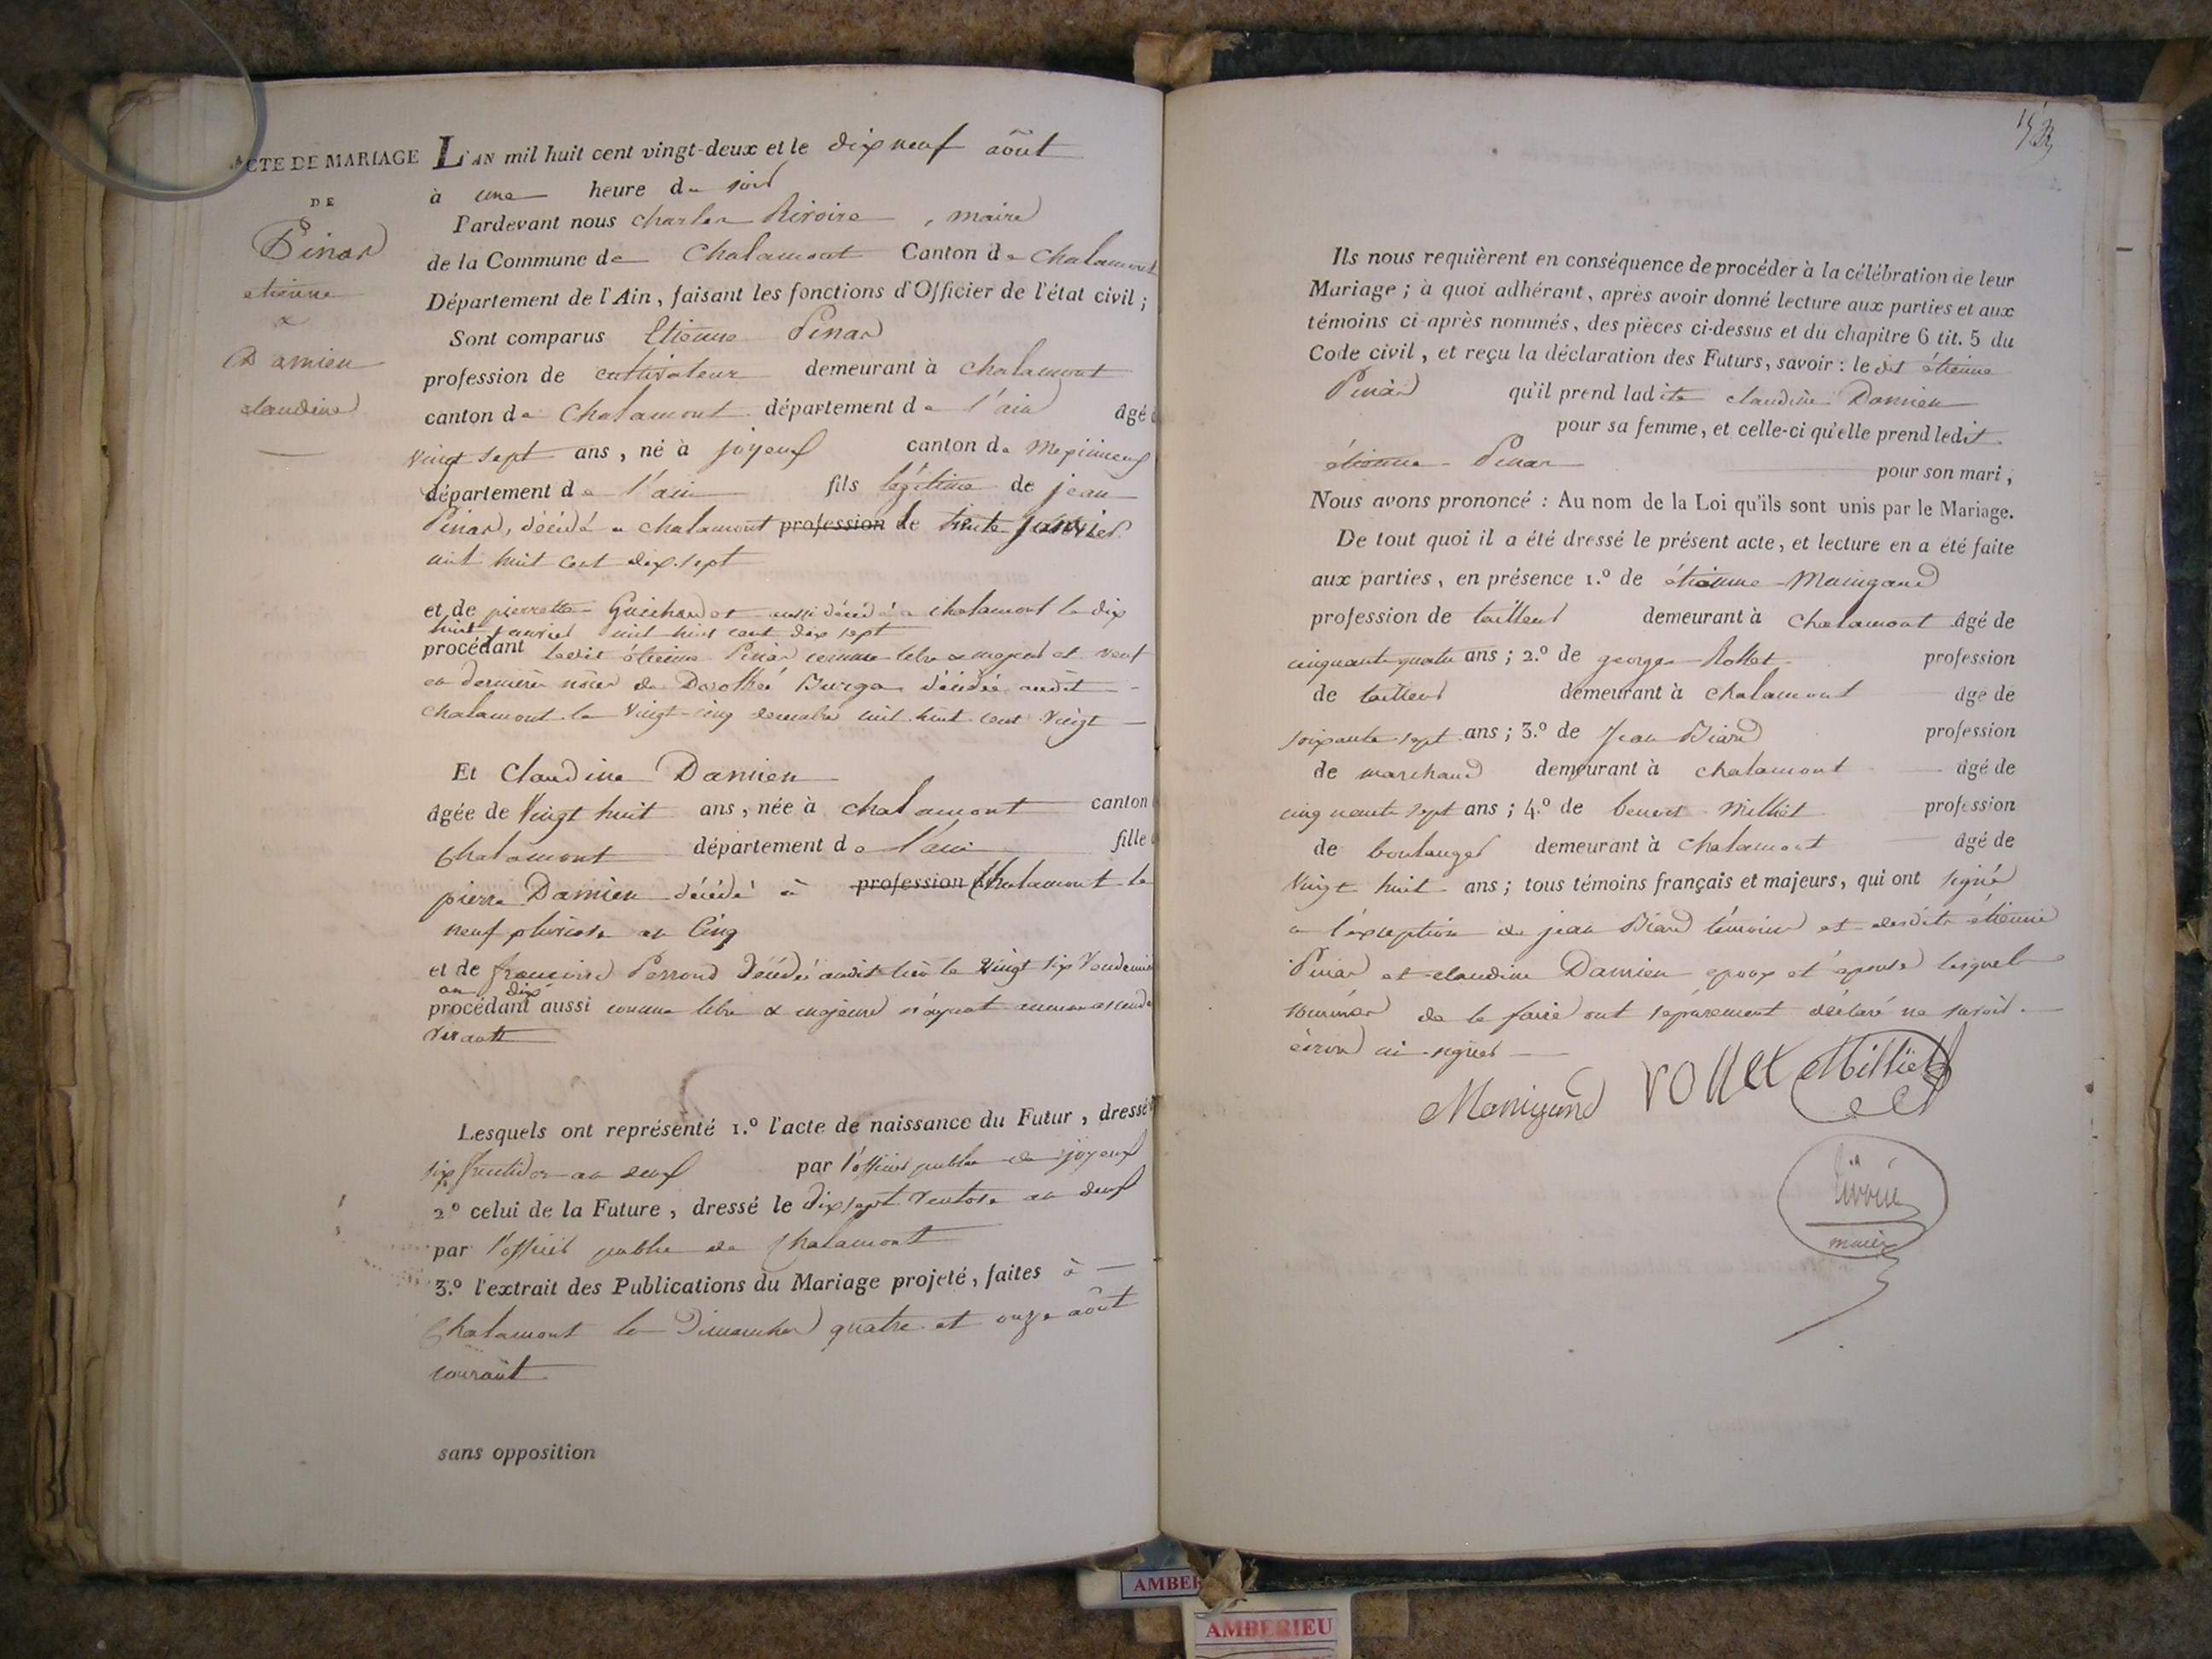 ACTE DE MARIAGE
DE
Pinar
etienne
&
Damien
claudine
L'AN mil huit cent vingt-deux et le dix neuf août
à une heure du soir
Pardevant nous charles Rivoire, maire
de la Commune de Chalamont Canton de chalamont
Département de l'Ain, faisant les fonctions d'Officier de l'état civil;
Sont comparus Etienne Pinar
profession de cultivateur demeurant à chalamont
canton de Chalamont département de l'ain âgé
vingt sept ans, né à joyeux canton de Meximieux
département de l'ain fils légitime de jean
Pinar, décédé a chalamont profession de trente janvier
mil huit cent dix sept
et de pierrette Guichardot aussi décédée a chalamont le dix
huit janvier mil huit cent dix sept
procédant ledit étienne Pinar comme libre & majeur et veuf
en dernière nôces de Dorothée Burga décédée audit
chalamont le vingt-cinq décembre mil huit cent vingt
Et Claudine Damien
âgée de Vingt huit ans, née à chalamont canton
Chalamont département de l'ain fille
pierre Damien décédé à profession Chalamont le
neuf pluviose an Cinq
et de françoise Perroud décédée audit lieu le vingt six Vendemi
an dix
procédant aussi comme libre & majeure n'ayant aucun ascend
vivant
Lesquels ont représenté 1.º l'acte de naissance du Futur, dressé
six fructidor an deux par l'officier public de joyeux
2º celui de la Future, dressé le dix sept Ventose an deux
par l'officier public de Chalamont
3.º l'extrait des Publications du Mariage projeté, faites à
Chalamont les Dimanches quatre et onze août
courant
sans opposition
Ils nous requièrent en conséquence de procéder à la célébration de leur
Mariage; à quoi adhérant, après avoir donné lecture aux parties et aux
témoins ci-après nommés, des pièces ci-dessus et du chapitre 6 tit. 5 du
Code civil, et reçu la déclaration des Futurs, savoir: le dit étienne
Pinar qu'il prend ladite claudine Damien
pour sa femme, et celle-ci qu'elle prend ledit
étienne Pinar pour son mari,
Nous avons prononcé: Au nom de la Loi qu'ils sont unis par le Mariage.
De tout quoi il a été dressé le présent acte, et lecture en a été faite
aux parties, en présence 1.º de étienne Manigand
profession de tailleur demeurant à chalamont âgé de
cinquante quatre ans; 2.º de george Rollet profession
de tailleur demeurant à chalamont âgé de
soixante sept ans; 3.º de Jean Biard profession
de marchand demeurant à chalamont âgé de
cinquante sept ans; 4.º de benoit Milliet profession
de boulanger demeurant à Chalamont âgé de
vingt huit ans; tous témoins français et majeurs, qui ont signé
a l'exception de jean Biard témoin et desdits étienne
Pinar et claudine Damien epoux et épouse lesquels
sommés de le faire ont séparement déclaré ne savoir
écrire ni signer
Manigand rollet Milliet
rivoire
maire
AMBERIEU